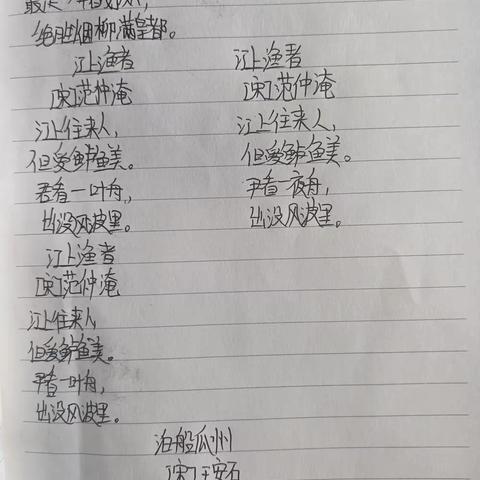 绝胜烟柳满皇都。
江上渔者
[宋]范仲淹
江上往来人，
但爱鲈鱼美。
君看一叶舟，
出没风波里。
江上渔者
[宋]范仲淹
江上往来人，
但爱鲈鱼美。
尹看一夜舟，
出没风波里。
江上渔者
[宋]范仲淹
江上往来人
但爱鲈鱼美。
尹看一叶舟，
出没风波里。
泊船瓜州
[宋]王安石